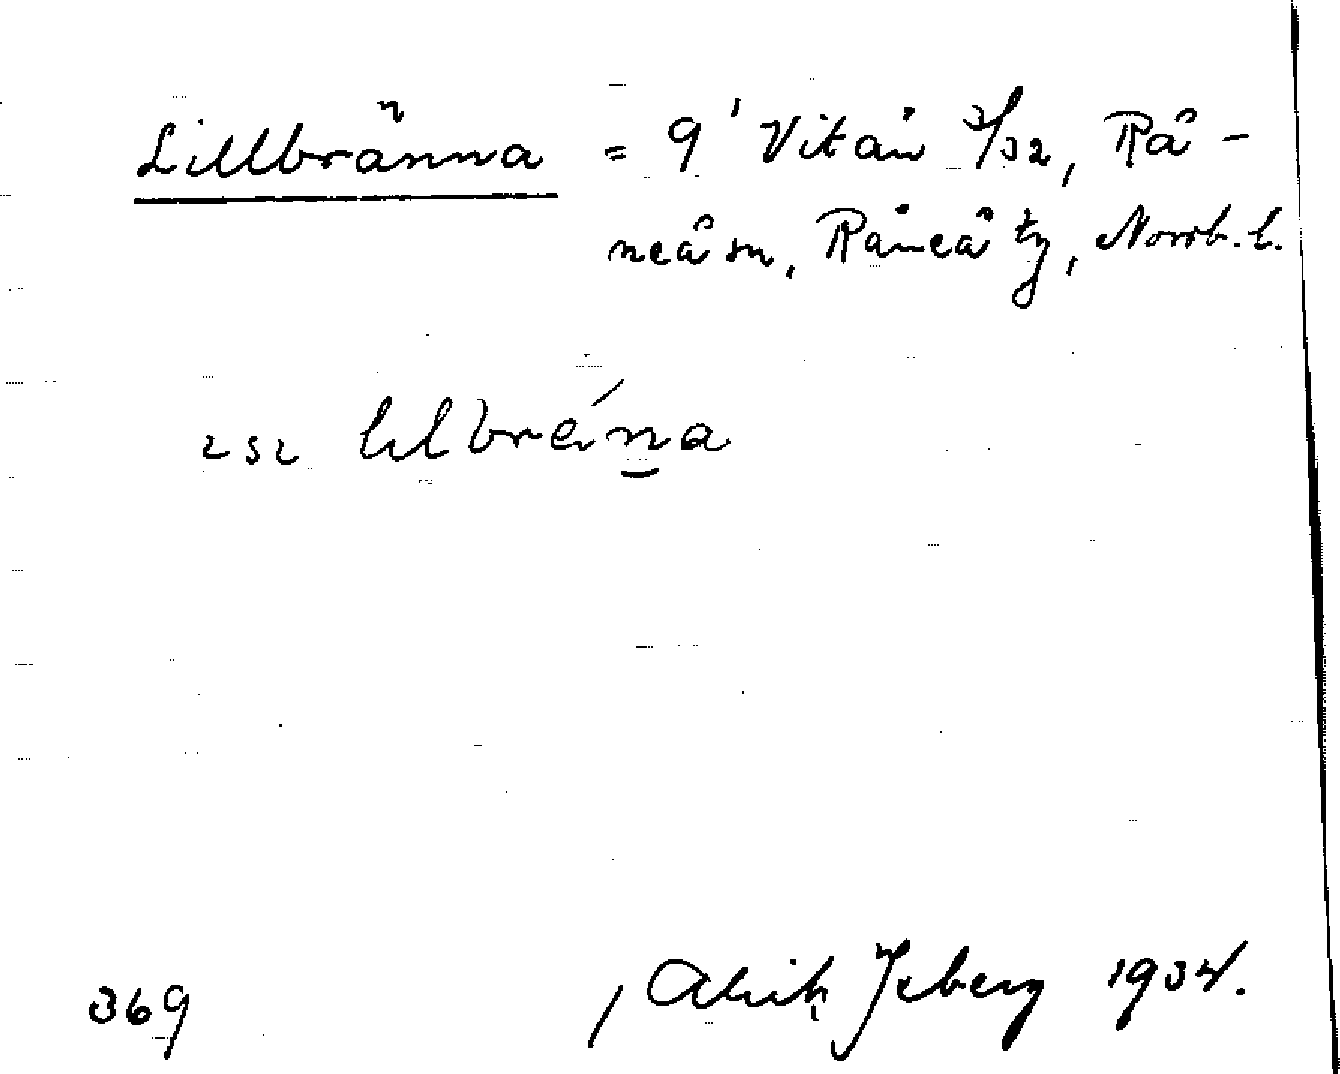 Lillbränna = 9' Vitån 3/32, Rå-
neå sn, Råneå tg, Norrb. l.
252 lılbréṉa
369 , Alrik Isberg 1934.